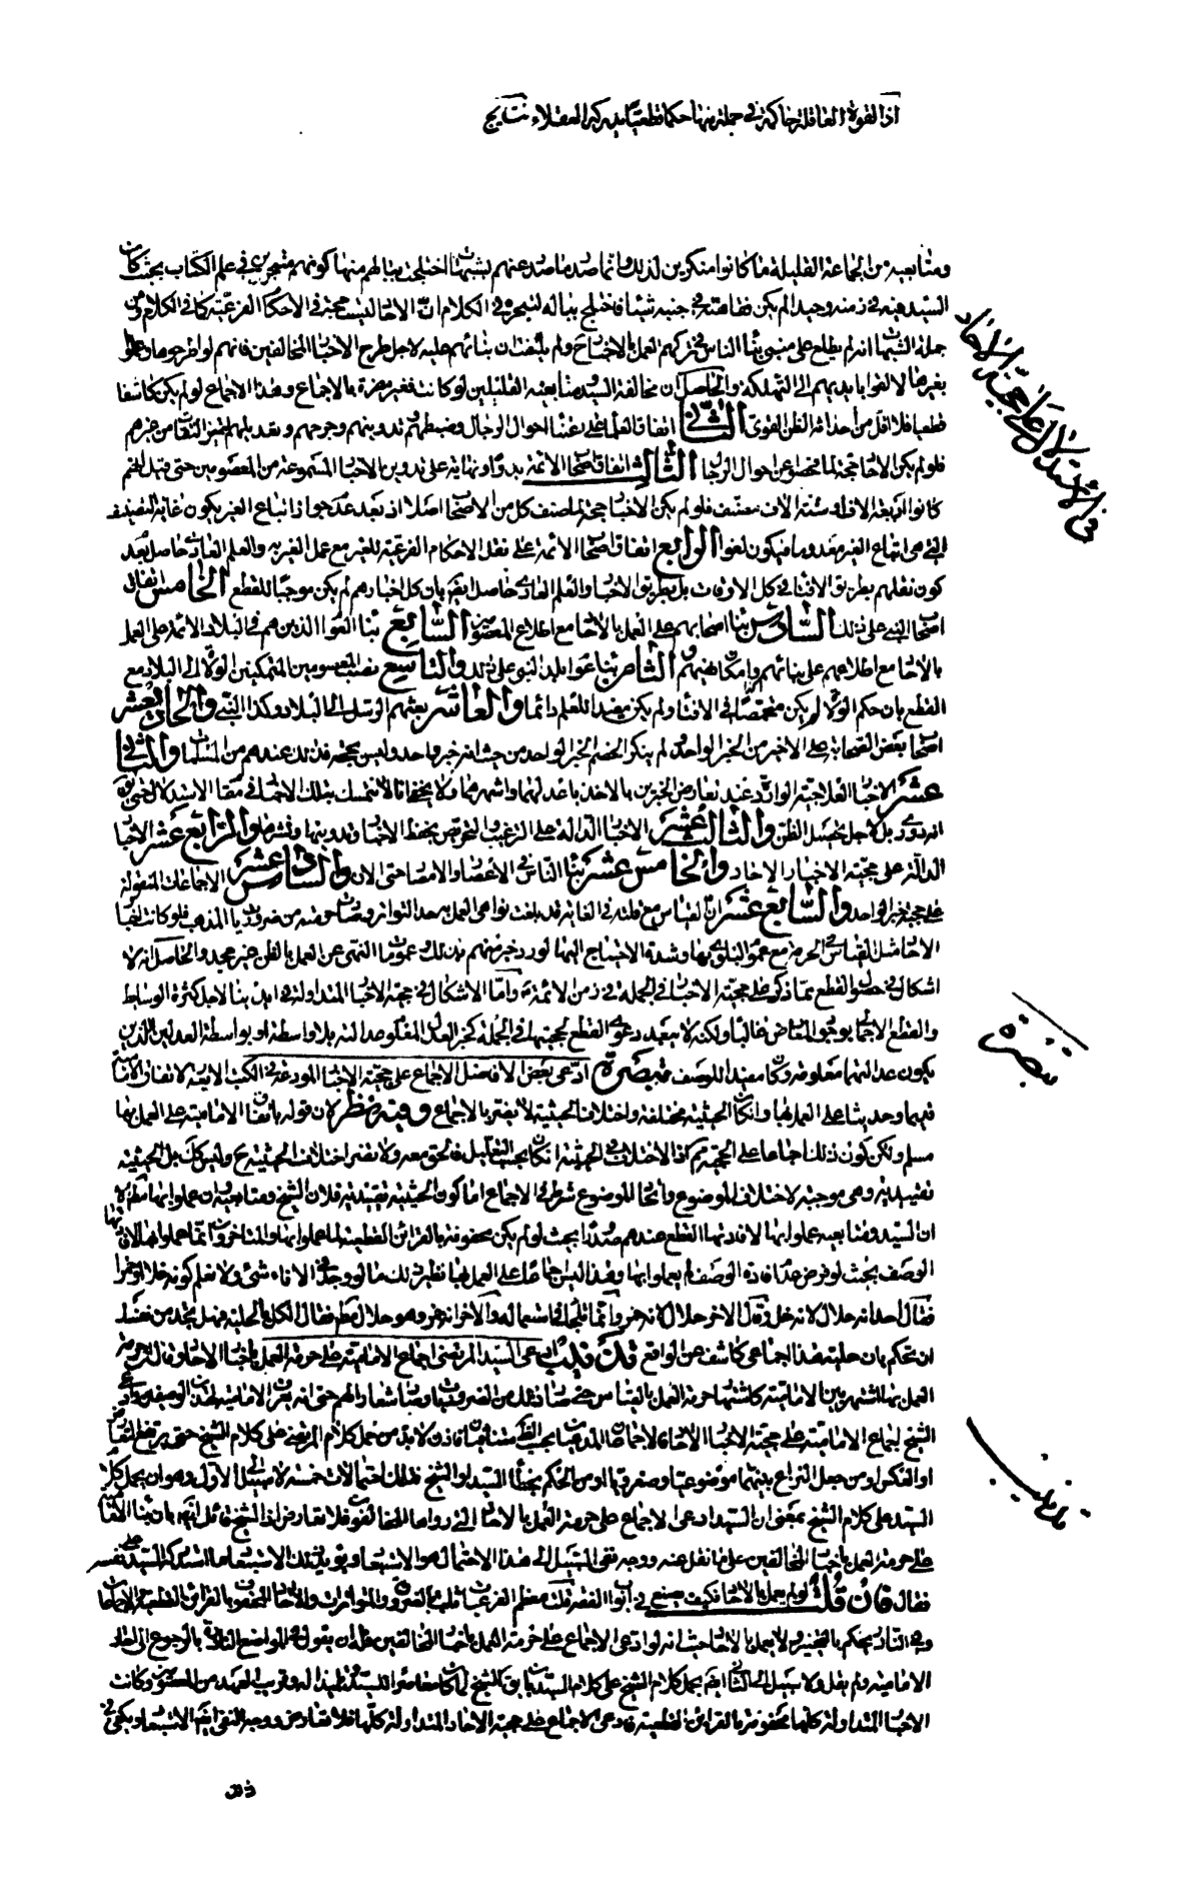 اذ القوة العاقلة حاكمة في جملة منها حكما قطعيا يدركه العقلاء نتايج
ومتابعيه من الجماعة القليلة ما كانوا منكرين لذلك وانما صدر ما صدر عنهم لشبهات اختلجت ببالهم منها كونهم متبحرين في علم الكتاب بحيث كان
السيد فيه في زمنه وحيدا لم يكن فقاهته في جنبه شيئا فاختلج بباله لتبحره في الكلام ان الاحاد ليست حجة في الاحكام الفرعية كما في الكلام ومن
جملة الشبهات انه لم يطلع على بناء الناس في تركهم العمل بالاحتياج ولم يلتفت ان بنائهم عليه لاجل طرح الاخبار المخالفين فانهم لو اطرحوها وعملوا
بغيرها لالقوا بايديهم الى التهلكة والحاصل ان مخالفة السيد ومتابعيه القليلين لو كانت فغير مضرة بالاجماع وهذا الاجماع لو لم يكن كاشفا
قطعيا فلا اقل من احداثه الظن القوى الثاني اتفاق العلماء على اعتناء احوال الرجال وضبطهم وتدوينهم وجرحهم وتعديلهم لتميز الثقات من غيرهم
فلو لم يكن الاحاد حجة لما فحصوا عن احوال الرجال الثالث اتفاق اصحاب الائمة بدوا ونهاية على تدوين الاخبار المسموعة من المعصومين حتى قيل انهم
كانوا اربعة الاف او ستة الاف مصنف فلو لم يكن الاخبار حجة لما صنف كل من الاصحاب اصلا اذ بعد عدم جواز اتباع الغير يكون غاية التصنيف
التي هي انتفاع الغير مهدوما فيكون لغوا الرابع اتفاق اصحاب الائمة على نقل الاحكام الفرعية للغير مع عمل الغير به والعلم العادى حاصل بعد
كون نقلهم بطريق الافتاء في كل الاوقات بل بطريق الاخبار والعلم العادى حاصل ايضا بان كل اخبارهم لم يكن موجبا للقطع الخامس اتفاق
اصحاب النبي على ذلك السادس بناء اصحابهم على العمل بالاحاد مع اطلاع المعصومين السابع بناء العوام الذين هم في البلاد الائمة على العمل
بالاحاد مع اطلاعهم على بنائهم وامكان نهيهم الثامن بناء عوام بلد النبي على ذلك والتاسع نصب المعصومين المتمكنين الولاة الى البلاد مع
القطع بان حكم الولاة لم يكن منحصرا في الافتاء ولم يكن مفيدا للعلم دائما والعاشر بعثهم الرسل الى البلاد وكذا النبي والحادي عشر
اصحاب بعض الصحابة على الاخر من الخبر الواحد ولم ينكر الخصم الخبر الواحد من حيث انه خبر واحد وليس بحجة فذلك عندهم من المسلمات والثاني
عشر الاخبار العلاجية الواردة عند تعارض الخبرين بالاخذ باعدلهما واشهرهما ولا يخفى انا لا نتمسك بتلك الاخبار في مقام الاستدلال حتى يق
انه دوري بل لاجل تحصيل الظن والثالث عشر الاخبار الدالة على الترغيب والتحريص بحفظ الاخبار وتدوينها ونشرها والرابع عشر الاخبار
الدالة على حجية الاخبار الاحاد والخامس عشر بناء الناس في الاعصار والامصار حتى الان والسادس عشر الاجماعات المنقولة
على حجية خبر الواحد والسابع عشر ان القياس مع قلته في الغاية قد بلغت نواهي العمل به حد التواتر وصارت حرمته من ضروريات المذهب فلو كانت اخبار
الاحاد مثل القياس في الحرمة مع عموم البلوى بها وشدة الاحتياج اليها لورد خبر منهم من ذلك عموما النهى عن العمل بالظن غير مجد والحاصل انه لا
اشكال في حصول القطع مما ذكر على حجية الاخبار في الجملة في زمن الائمة واما الاشكال في حجية الاخبار المتداولة في ايدينا لاجل كثرة الوسائط
والقطع الاجمالي بوجود المعارض غالبا ولكنه لا يبعد دعوى القطع بحجيتها في الجملة كخبر العدل المعلوم عدالته بلا واسطة او بواسطة العدلين الذين
يكون عدالتهما معلومة وكان مفيدا للوصف تبصرة ادعى بعض الافاضل الاجماع على حجية الاخبار المودعة في الكتب الاربعة لاتفاق الامامية
قديما وحديثا على العمل بها وان كان الحيثية مختلفة واختلاف الحيثية لا يضر بالاجماع وفيه نظر لان قوله باتفاق الامامية على العمل بها
مسلم ولكن كون ذلك اجماعا على الحجية مم اذ الاختلاف في الحيثية ان كان بحسب التعليل فالحق معه ولا يضر اختلاف الحيثية ح وليس كك بل الحيثية
تقييدية وهي موجبة لاختلاف الموضوع واتحاد الموضوع شرط في الاجماع اما كون الحيثية تقييدية فلان الشيخ ومتابعيه ان عملوا بها
ان السيد ومتابعيه عملوا بها لافادتها القطع عندهم صدورا بحيث لو لم يكن محفوفة بالقرائن القطعية لما عملوا بها والمتاخرون انما عملوا بها لافادتها
الوصف بحيث لو فرض عدم افادة الوصف لم يعملوا بها وهذا ليس اجماعا على العمل بها نظير ذلك ما لو وجد في الاناء شئ ولا نعلم كونه خلا او خمرا
فقال احد انه حلال لانه خل وقال الاخر حلال لانه
ان يحكم بان حلية هذا اجماعي كاشف عن الواقع قد قلب ادعى السيد المرتضى اجماع الامامية على حرمة العمل باخبار الاحاد وقال ان حرمة
العمل بها اشتهر بين الامامية كاشتهار حرمة العمل بالقياس حتى صار ذلك من الضروريات وصار شعارا لهم حتى انه يعرف الامامية بهذا الوصف وادعى
الشيخ اجماع الامامية على حجية الاخبار الاحاد فالاجماعان المدعيان بحسب الظاهر متنافيان فاذن لا بد من حمل كلام المرتضى على كلام الشيخ حتى يرتفع التعارض
او العكس او من جعل النزاع بينهما موضوعيا وصغرويا او من الحكم بخطأ السيد او الشيخ فتلك احتمالات خمسة لا سبيل الى الاول وهو ان يحمل كلام
السيد على كلام الشيخ بمعنى ان السيد ادعى الاجماع على حرمة العمل بالاحاد التي رواها المخالفون فلا تعارض اذ الشيخ قائل ايضا بان بناء الامامية
على حرمة العمل باخبار المخالفين على ما نقل عنه ووجه نفى السبيل الى هذا الاحتمال هو الاستبعاد ويؤيد تلك الاستبعاد ما استدركه السيد على نفسه
فقال فان قلت ولو لم يعمل بالاحاد فكيف يصنع في ابواب الفقه قلت معظم الفرعيات قلنا بالضرورة والمتواترات والاحاد المحفوفة بالقرائن القطعية والاجماعات
وفي النادر يحكم بالتخيير ولا يعمل بالاحاد حيث انه لو ادعى الاجماع على حرمة العمل باخبار المخالفين فله ان يقول في المواضع النادرة بالرجوع الى احاد
الامامية ولم يقل ولا سبيل الى الثاني ايضا بحمل كلام الشيخ على كلام السيد بان يق الشيخ لما كان معاصرا للسيد وتلميذا له وقريب العهد من المعصوم وكانت
الاخبار المتداولة كلها محفوفة بالقرائن القطعية فادعى الاجماع على حجية الاحاد المتداولة كلها فلا تعارض ووجه النفى ايضا الاستبعاد ويكفى في
ذلك
في الاستدلال على حجية الاحاد
تبصرة
قد قلب